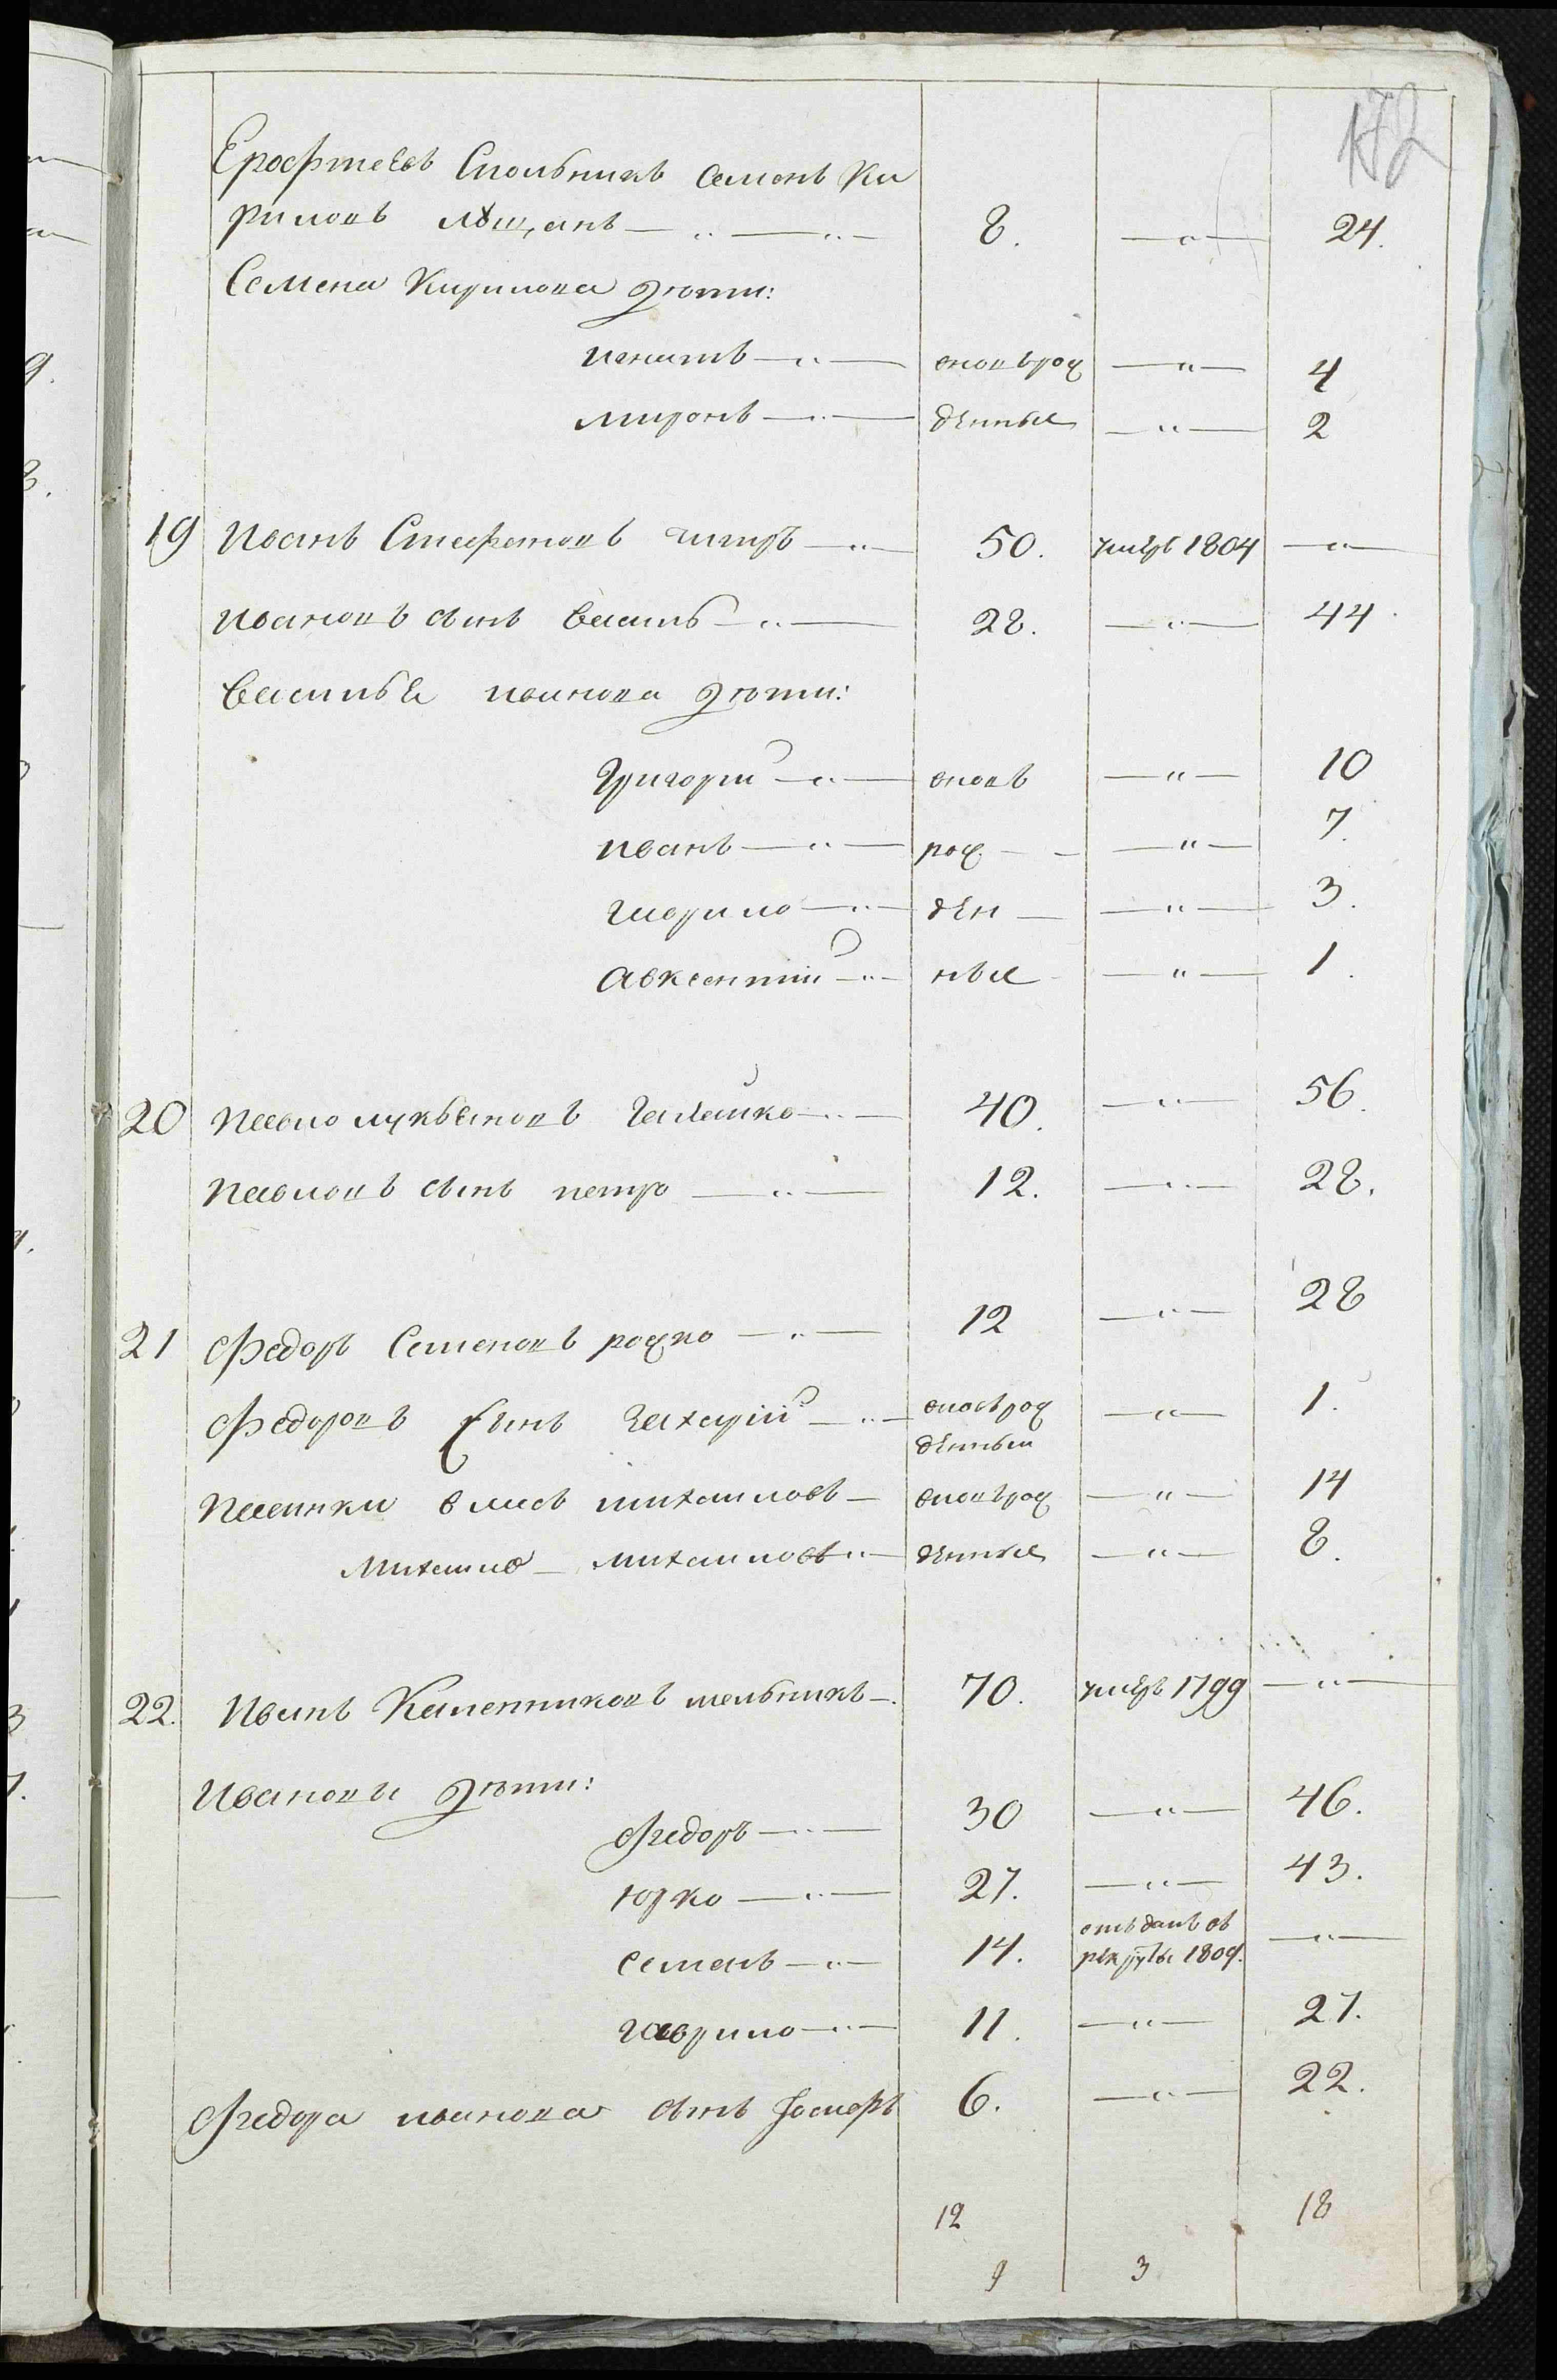 172
Ерофтеевъ Спольникъ Семенъ Ки
риловъ — " — " — 8. — " — 24.
Семена Кирилова дѣти:
Игнатъ — " — вновьрож — " — 4
Миронъ — " — денные — " — 2
19 Иванъ Стефановъ — " — 50. умеръ 1804 — " —
Ивановъ сынъ Василь — " — 28. — " — 44.
Василья Иванова дѣти:
Григорій — " — вновъ — " — 10
Иванъ — " — рож — — " — 7.
Гаврило — " — ден — — " — 3.
Авксентій — " — ные — " — 1.
20 Павло Лукьяновъ — " — 40. — " — 56.
Павловъ сынъ Петро — " — 12. — " — 28.
21 Федоръ Семеновъ — " — 12 — " — 28
Федоровъ Сынъ Захарій — " — вновьрож — " — 1.
денный
Власъ Михайловъ — вновьрож — " — 14
Михайло — Михайловъ " — денные — " — 8.
22. Иванъ Калениковъ мельникъ —. 70. умеръ 1799 — " —
Ивановы дѣти:
Федоръ — " — 30 — " — 46.
Юрко — " — 27. — " — 43.
Семенъ — " — 14. отъданъ въ рекруты 1809. — " —
Гаврило — " — 11. — " — 27.
Федора Иванова сынъ 6. — " — 22.
12 18
9 3